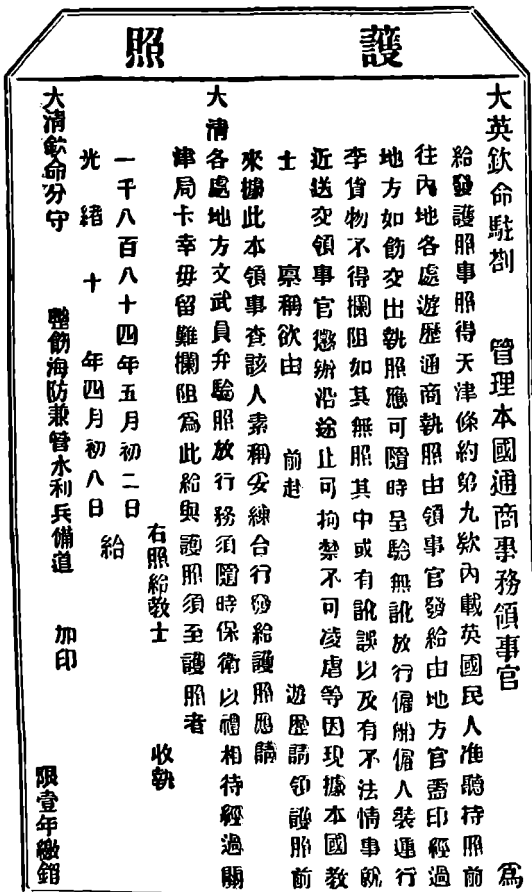 護照
大英欽命駐劄 管理本國通商事務領事官 爲
給發護照事照得天津條約第九欵內載英國民人准聽持照前
往內地各處遊歷通商執照由領事官發給由地方官蓋印經過
地方如飭交出執照應可隨時呈驗無訛放行僱船僱人裝運行
李貨物不得攔阻如其無照其中或有訛誤以及有不法情事就
近送交領事官懲辦沿途止可拘禁不可凌虐等因現據本國教
士 稟稱欲由 前赴 遊歷請領護照前
來據此本領事查該人素稱妥練合行發給護照應請
大清各處地方文武員弁驗照放行務須隨時保衛以禮相待經過關
津局卡幸毋留難攔阻爲此給與護照須至護照者
右照給教士 收執
一千八百八十四年五月初二日
光緒十年四月初八日 給
大清欽命分守 整飭海防兼管水利兵備道 加印
限壹年繳銷